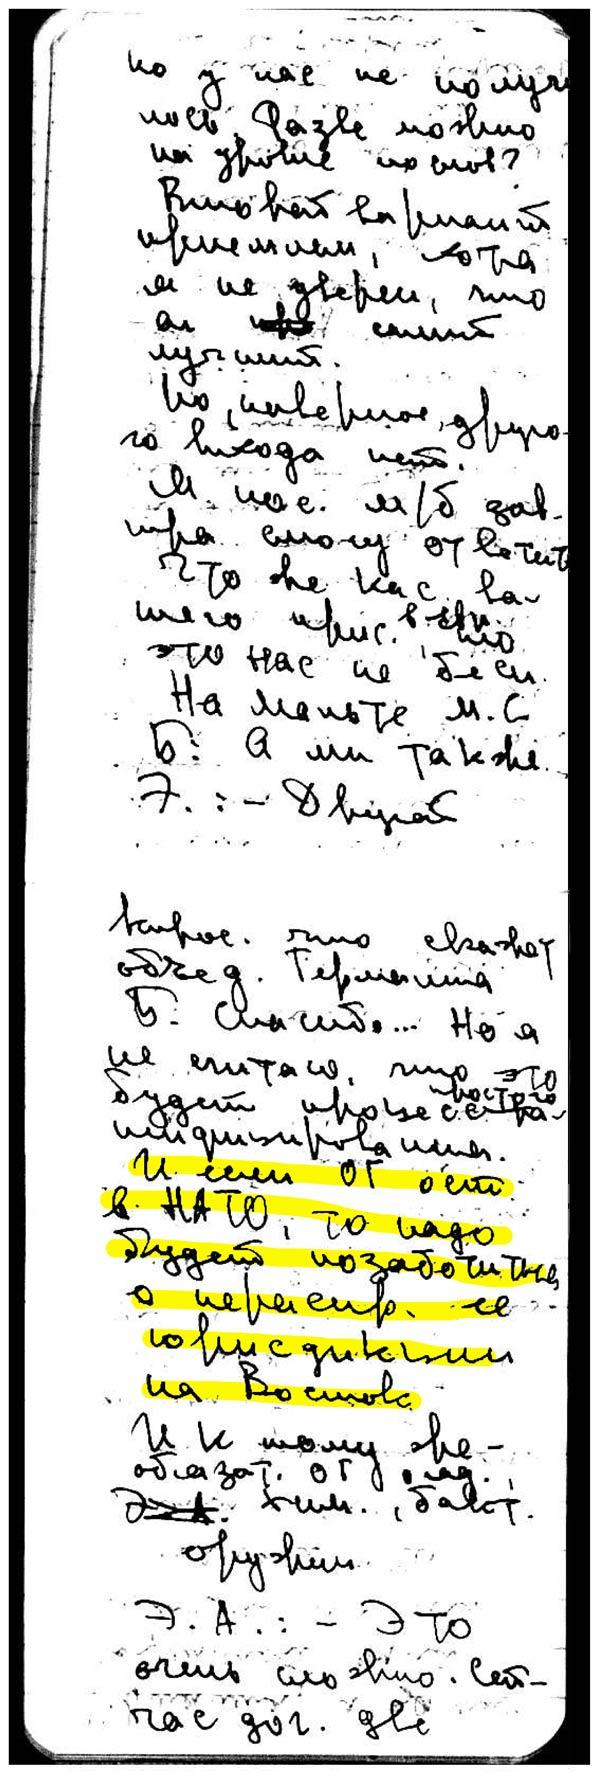 но у нас не получи
лось. Разве можно
на уровне послов?
Второй вариант
приемлем, хотя
я не уверен, что
он самый
лучший.
Но, наверное, друго-
го выхода нет.
М/б зав-
тра смогу ответить
Что же кас. ва-
шего прис. в Евр., то
это нас не бесп.
На Мальте М.С.
Б: А мы также.
Э.: – Другой
вопрос. что скажет
объед. Германия
Б. Спасибо... Но я
не считаю, что это
будет процесс простого
нейтрализования.
И если ОГ ост.
в НАТО, то надо
будет позаботиться
о нераспр. ее
юрисдикции
на Восток
И к тому же –
обязат. ОГ
хим., бакт.
оружии
Э.А.: – Это
очень сложно. Сей-
час дог. две